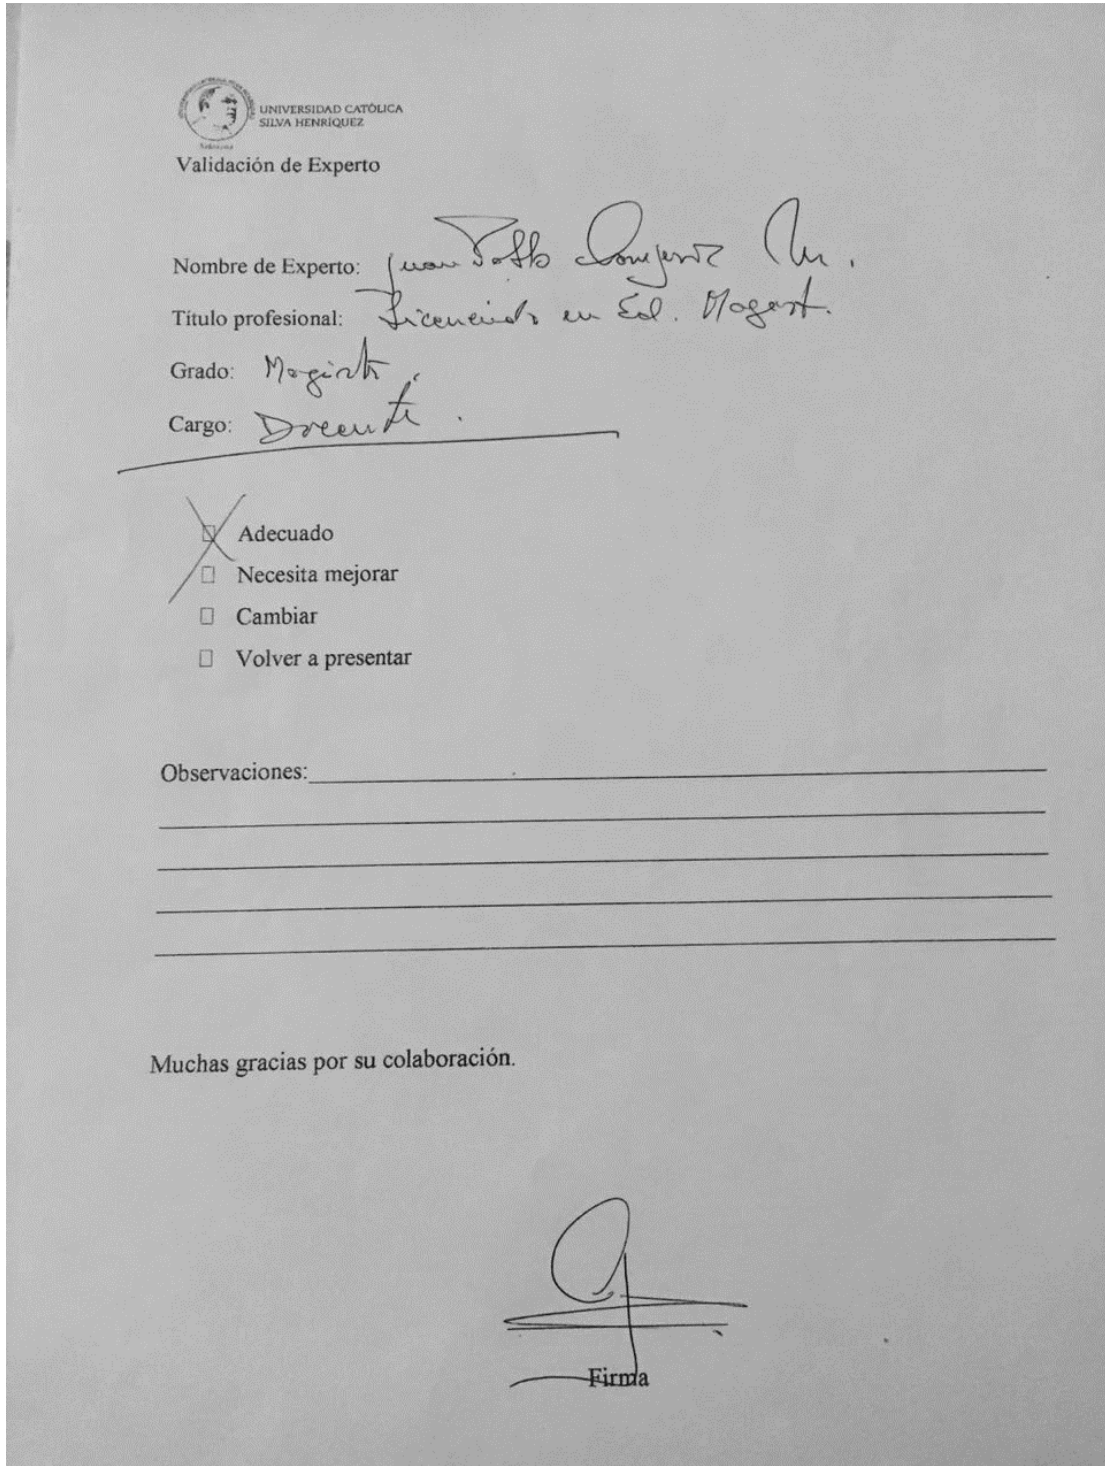 UNIVERSIDAD CATÓLICA
SILVA HENRÍQUEZ
Validación de Experto
Nombre de Experto: Juan Pablo
Título profesional: Licenciado en Ed.
Grado: Magister
Cargo: Docente.
Adecuado
Necesita mejorar
Cambiar
Volver a presentar
Observaciones:
Muchas gracias por su colaboración.
Firma